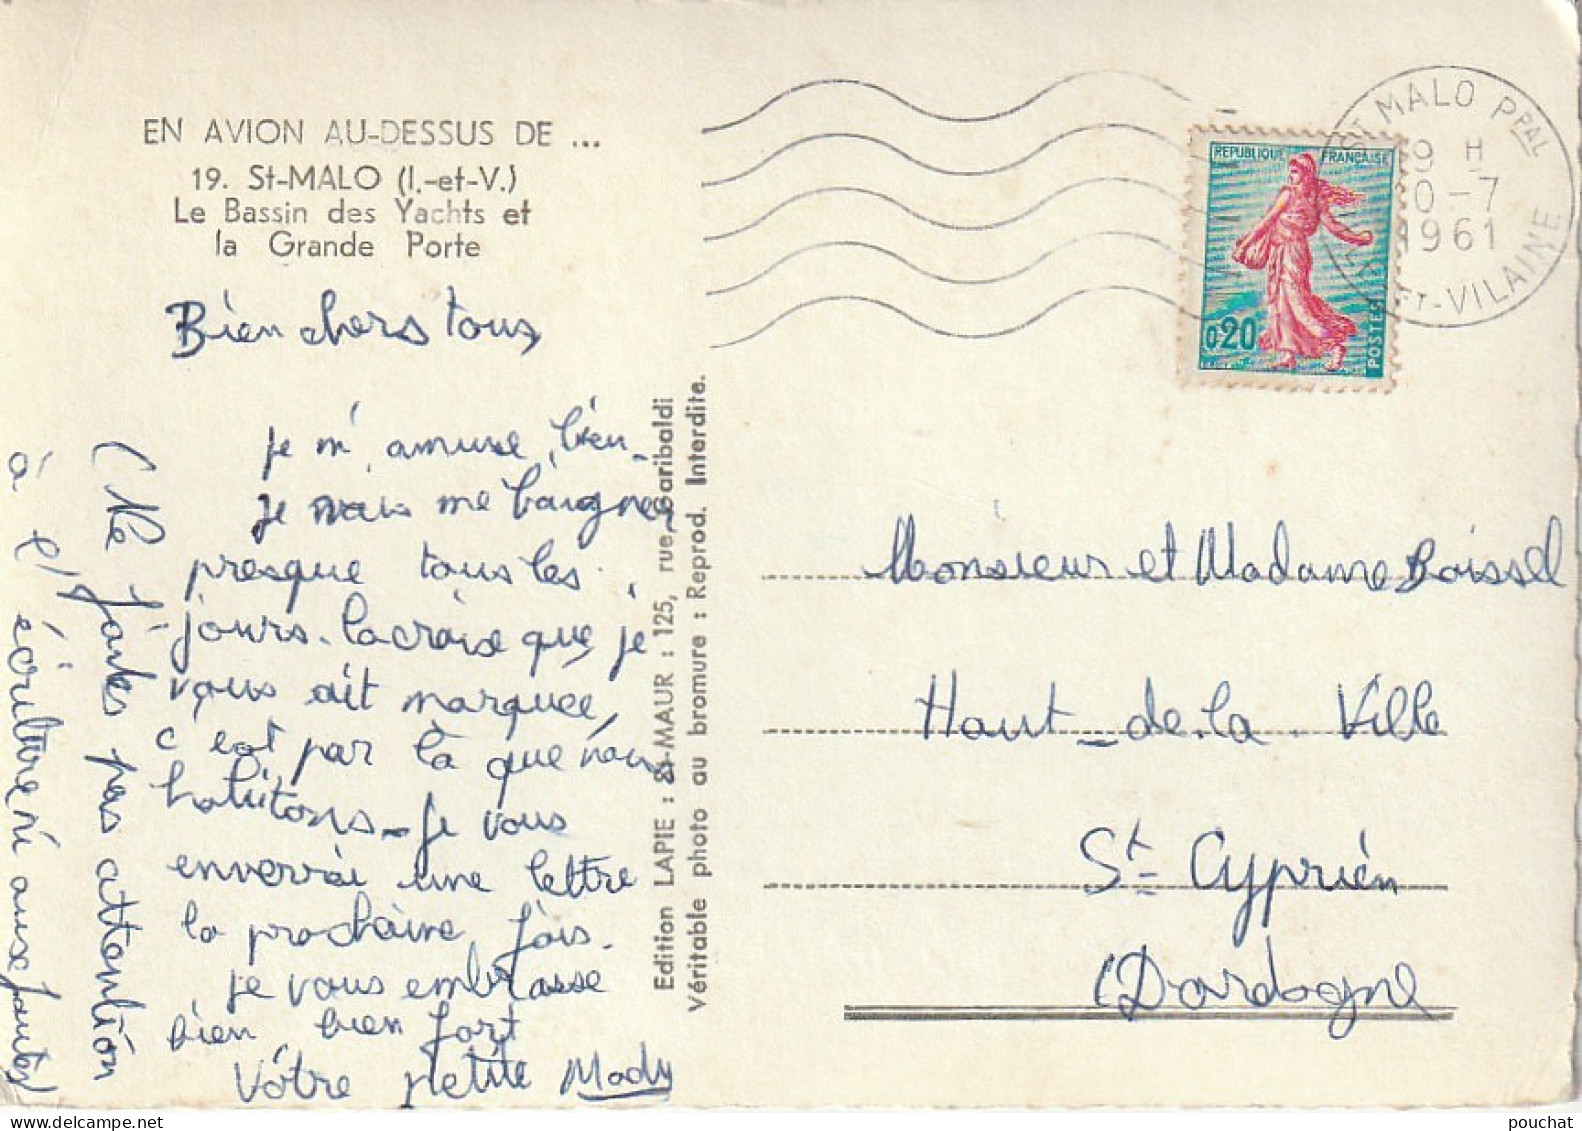 EN AVION AU-DESSUS DE ...
19. St-MALO (I.-et-V.)
Le Bassin des Yachts et
la Grande Porte
Bien chers tous,
je m'amuse bien.
je vais me baigner
presque tous les
jours. la croix que je
vous ait marquée,
c'est par là que nous
habitons. je vous
enverrai une lettre
la prochaine fois.
je vous embrasse
bien bien fort
Vôtre petite Mady
(Ne faites pas attention
à l'écriture ni aux fautes)
Edition LAPIE : St-MAUR : 125, rue Garibaldi
Véritable photo au bromure : Reprod. Interdite.
REPUBLIQUE FRANÇAISE
0,20
POSTES
ST MALO PPAL
9 H
0-7
1961
ILLE-ET-VILAINE
Monsieur et Madame Boissel
Haut-de-la Ville
St Cyprien
(Dordogne
pouchat